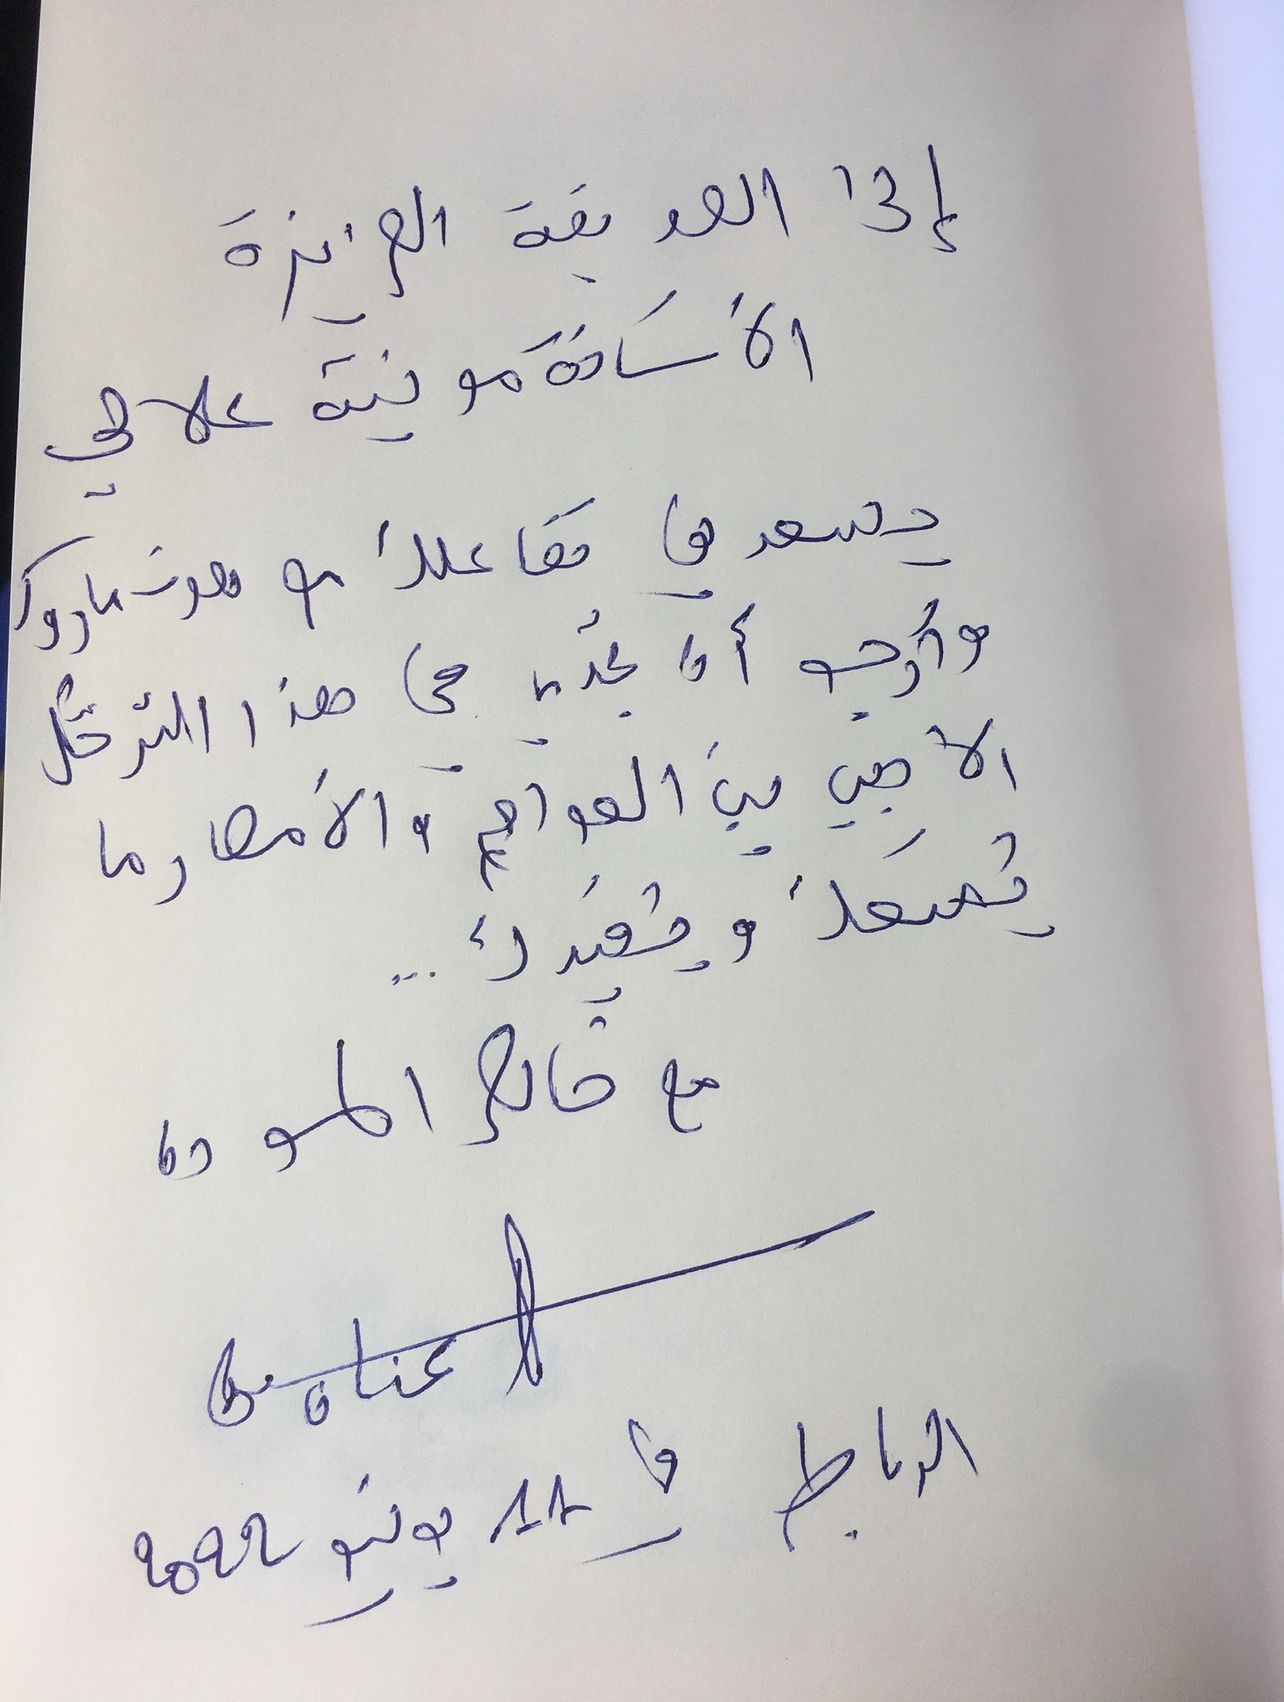 إلى الصديقة العزيزة
الأستاذة مونية علالي
يسعدني تفاعلك مع هوت ماروك
وأرجو أن تجدي في هذا الترحّل
الأدبي بين العوالم والأمصار ما
يُمتعك ويُفيدك...
مع خالص المودة
عدنان ياسين
الرباط في 11 يونيو 2022